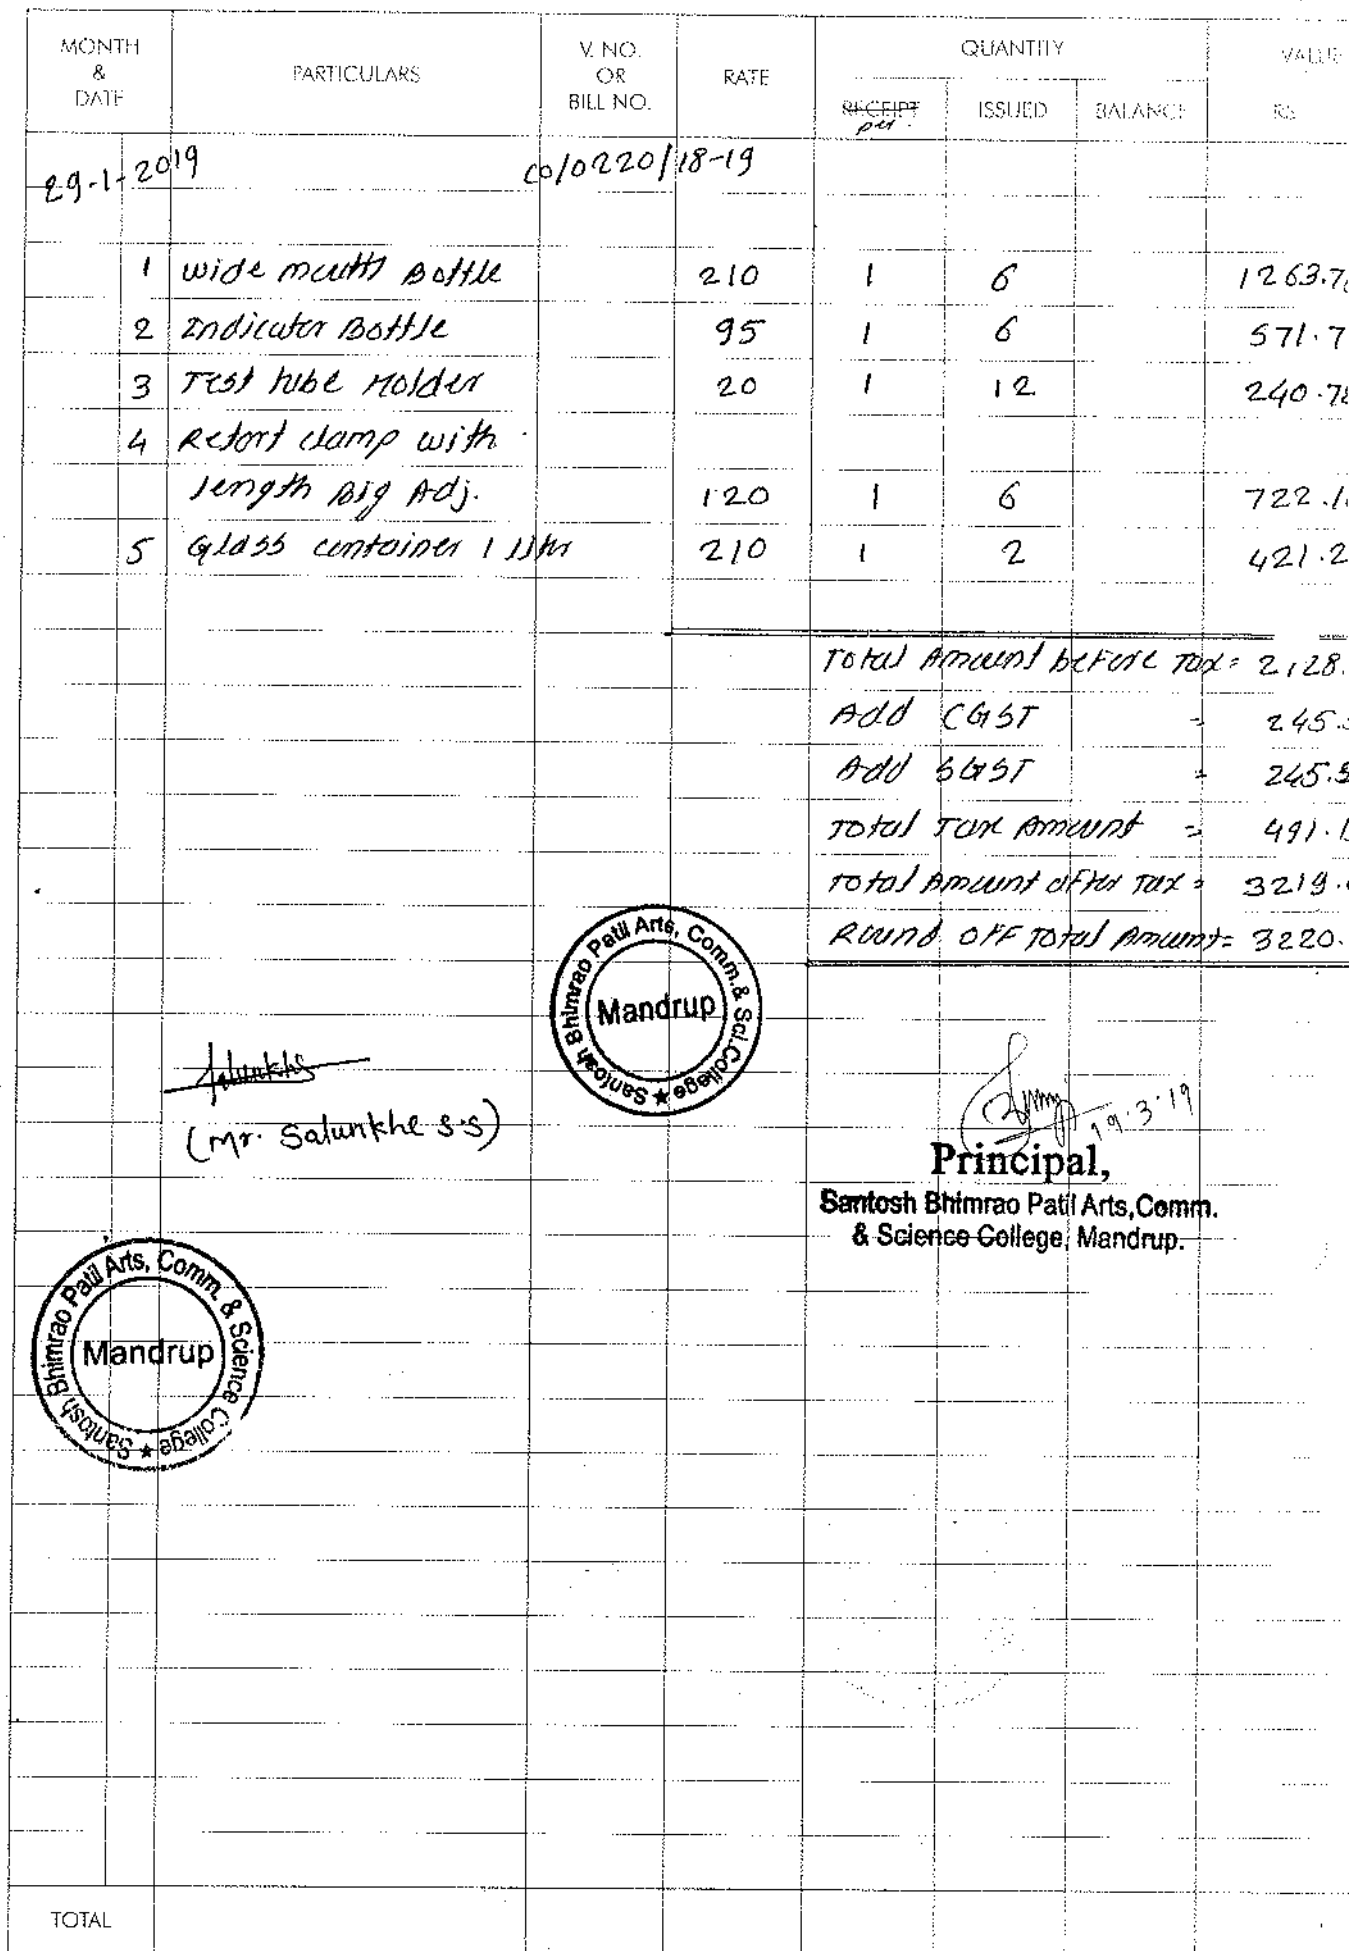 MONTH & DATE PARTICULARS V. NO. OR BILL NO. RATE QUANTITY VALUE
RECEIPT ISSUED BALANCE RS.
per.
29-1-2019 CO/0220/18-19
1 wide mouth Bottle 210 1 6 1263.7
2 Indicator Bottle 95 1 6 571.7
3 Test tube Holder 20 1 12 240.78
4 Retort clamp with
length Big Adj. 120 1 6 722.1
5 Glass container 1 litr 210 1 2 421.2
Total Amount before Tax = 2,128.
Add CGST = 245.
Add SGST = 245.
Total Tax Amount = 491.1
Total Amount after Tax = 3219.
Round OFF Total Amount = 3220.
Santosh Bhimrao Patil Arts, Comm.& Sci.College ★
Mandrup
Salunkhe
(Mr. Salunkhe S.S)
19.3.19
Principal,
Santosh Bhimrao Patil Arts,Comm.
& Science College, Mandrup.
Santosh Bhimrao Patil Arts, Comm. & Science College ★
Mandrup
TOTAL